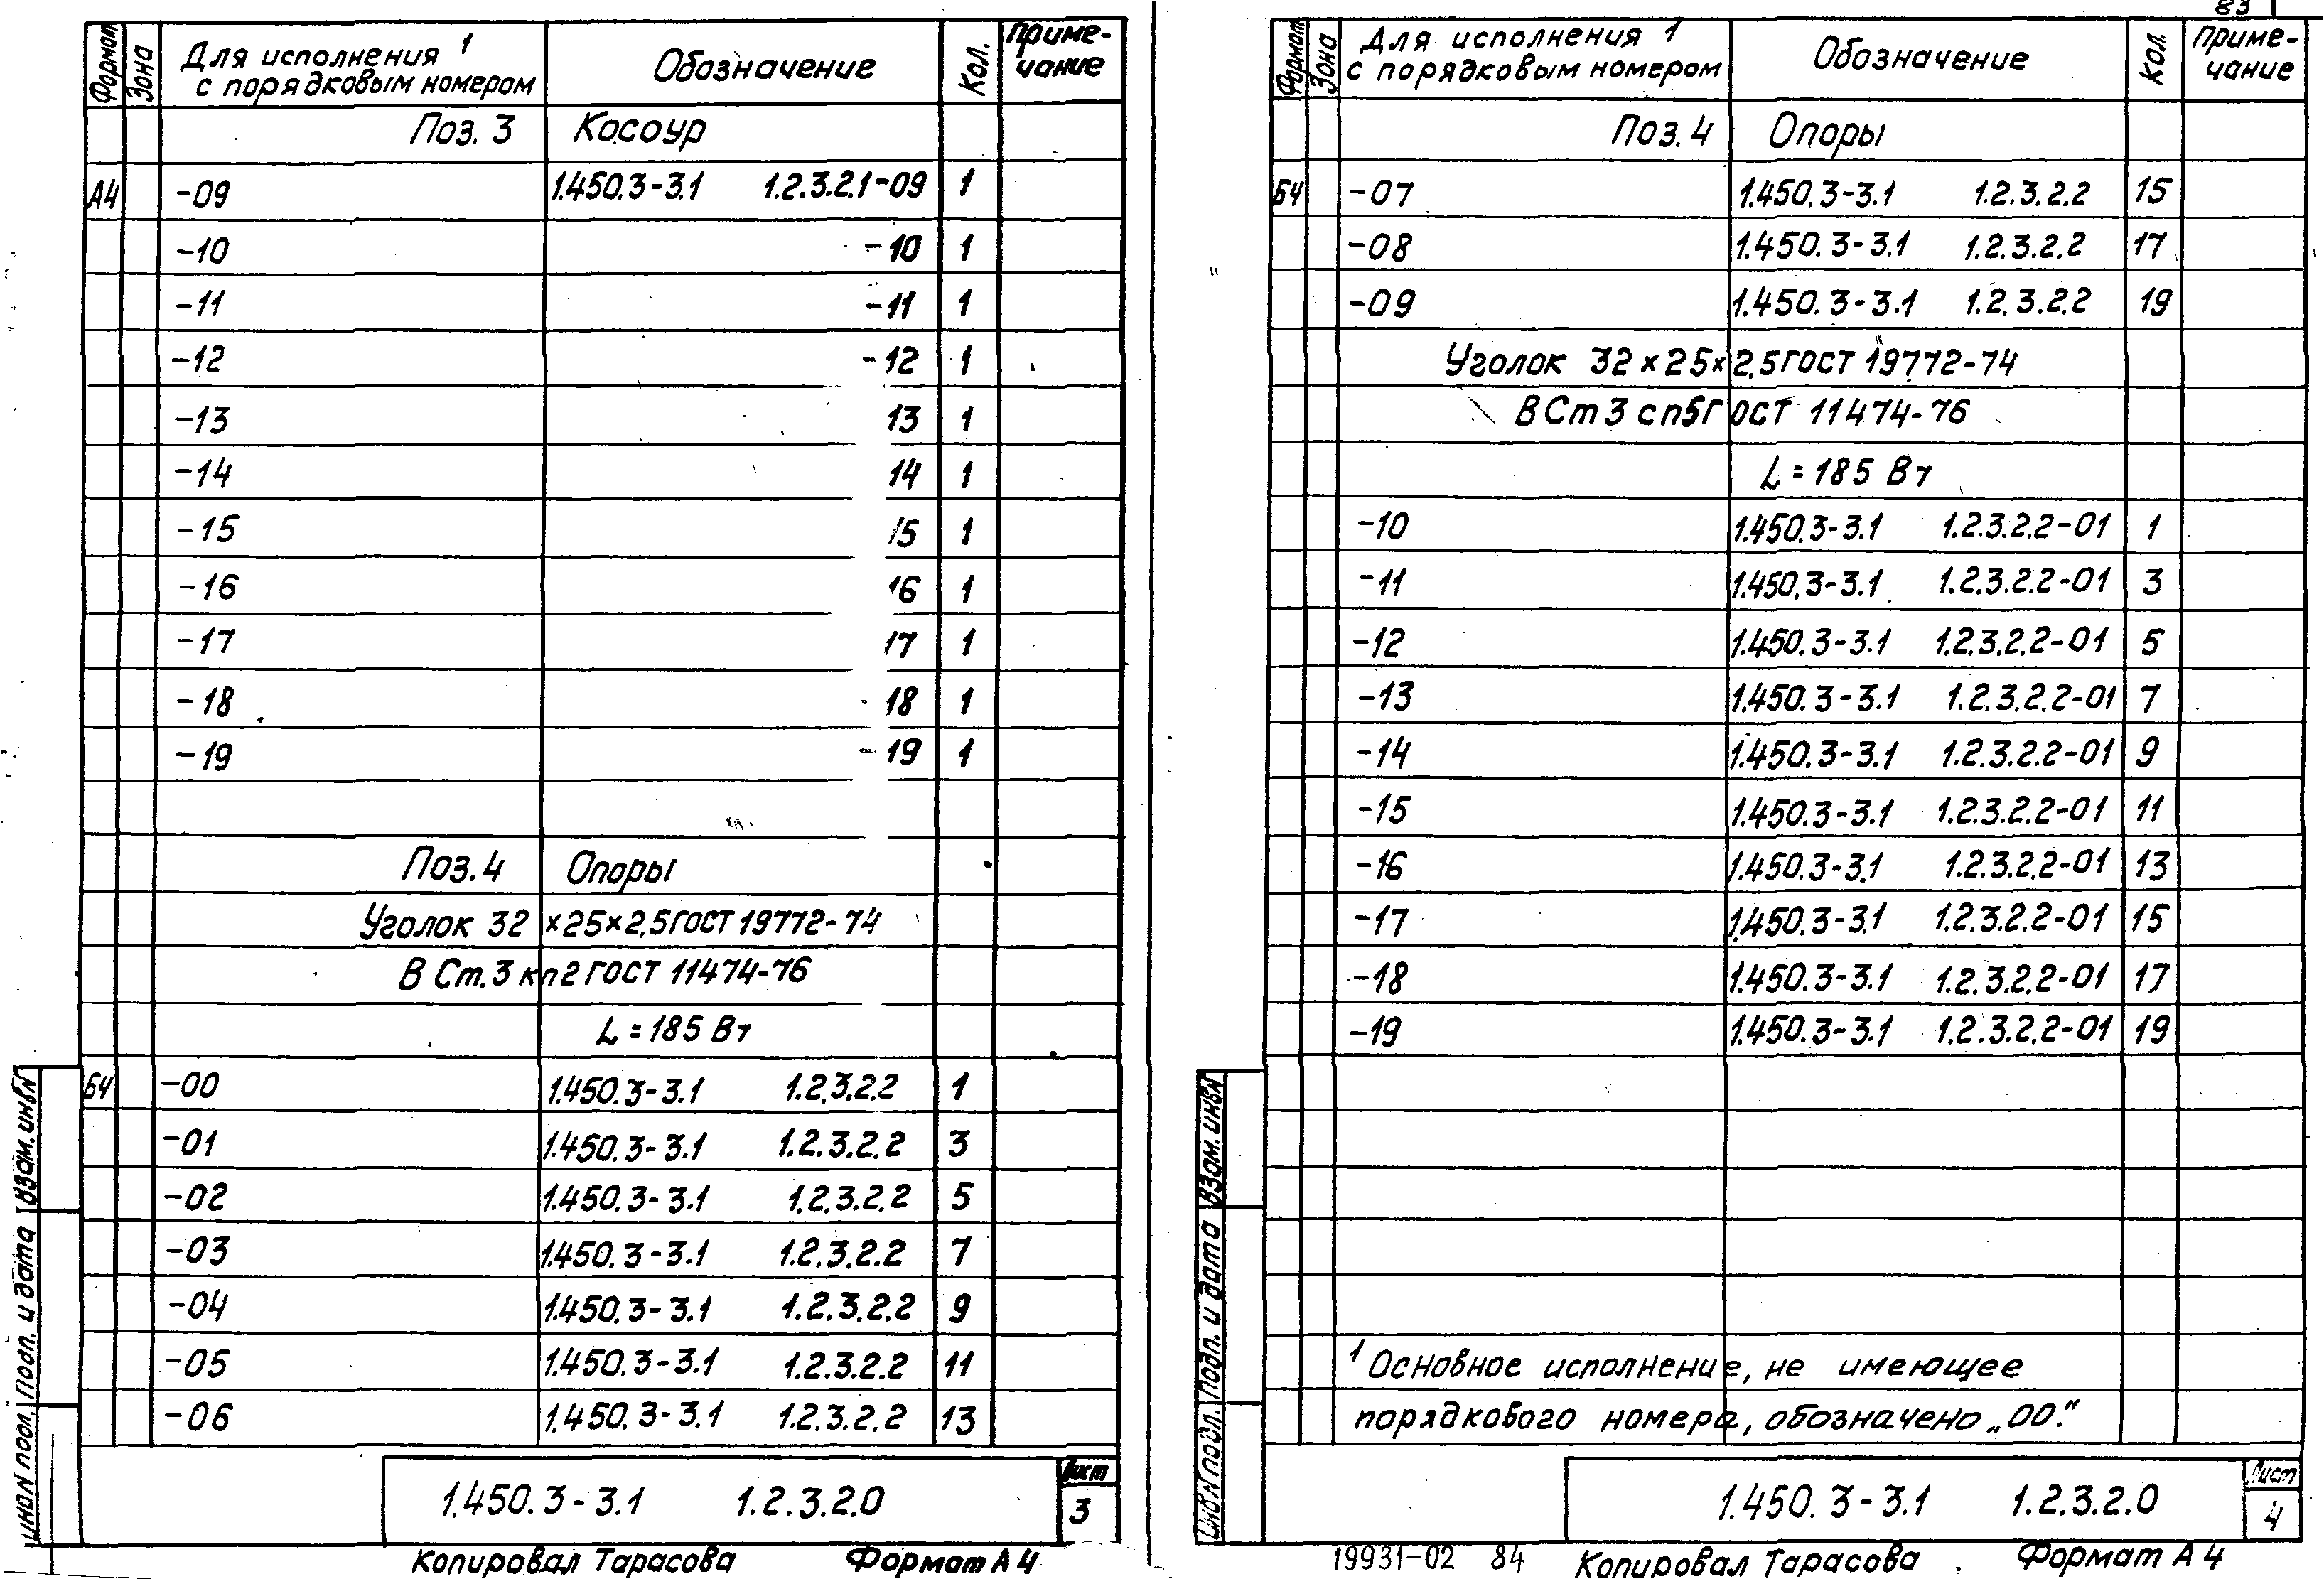 Формат Зона Для исполнения ¹ с порядковым номером Обозначение Кол. Примечание
Поз. 3 Косоур
А4 -09 1.450.3-3.1 1.2.3.2.1-09 1
-10 -10 1
-11 -11 1
-12 -12 1
-13 13 1
-14 14 1
-15 15 1
-16 16 1
-17 17 1
-18 -18 1
-19 -19 1
Поз. 4 Опоры
Уголок 32×25×2,5 ГОСТ 19772-74
В Ст.3 кп2 ГОСТ 11474-76
L=185 Вт
БЧ -00 1.450.3-3.1 1.2.3.2.2 1
-01 1.450.3-3.1 1.2.3.2.2 3
-02 1.450.3-3.1 1.2.3.2.2 5
-03 1.450.3-3.1 1.2.3.2.2 7
-04 1.450.3-3.1 1.2.3.2.2 9
-05 1.450.3-3.1 1.2.3.2.2 11
-06 1.450.3-3.1 1.2.3.2.2 13
Инв N подл. Подп. и дата Взам. инв N
1.450.3-3.1 1.2.3.2.0
Лист
3
Копировал Тарасова Формат А4
83
Формат Зона Для исполнения ¹ с порядковым номером Обозначение Кол. Примечание
Поз. 4 Опоры
БЧ -07 1.450.3-3.1 1.2.3.2.2 15
-08 1.450.3-3.1 1.2.3.2.2 17
-09 1.450.3-3.1 1.2.3.2.2 19
Уголок 32×25×2,5 ГОСТ 19772-74
В Ст 3 сп5 ГОСТ 11474-76
L=185 Вт
-10 1.450.3-3.1 1.2.3.2.2-01 1
-11 1.450.3-3.1 1.2.3.2.2-01 3
-12 1.450.3-3.1 1.2.3.2.2-01 5
-13 1.450.3-3.1 1.2.3.2.2-01 7
-14 1.450.3-3.1 1.2.3.2.2-01 9
-15 1.450.3-3.1 1.2.3.2.2-01 11
-16 1.450.3-3.1 1.2.3.2.2-01 13
-17 1.450.3-3.1 1.2.3.2.2-01 15
-18 1.450.3-3.1 1.2.3.2.2-01 17
-19 1.450.3-3.1 1.2.3.2.2-01 19
¹ Основное исполнение, не имеющее
порядкового номера, обозначено „00."
Инв N подл. Подп. и дата Взам. инв N
1.450.3-3.1 1.2.3.2.0
Лист
4
19931-02 84 Копировал Тарасова Формат А4